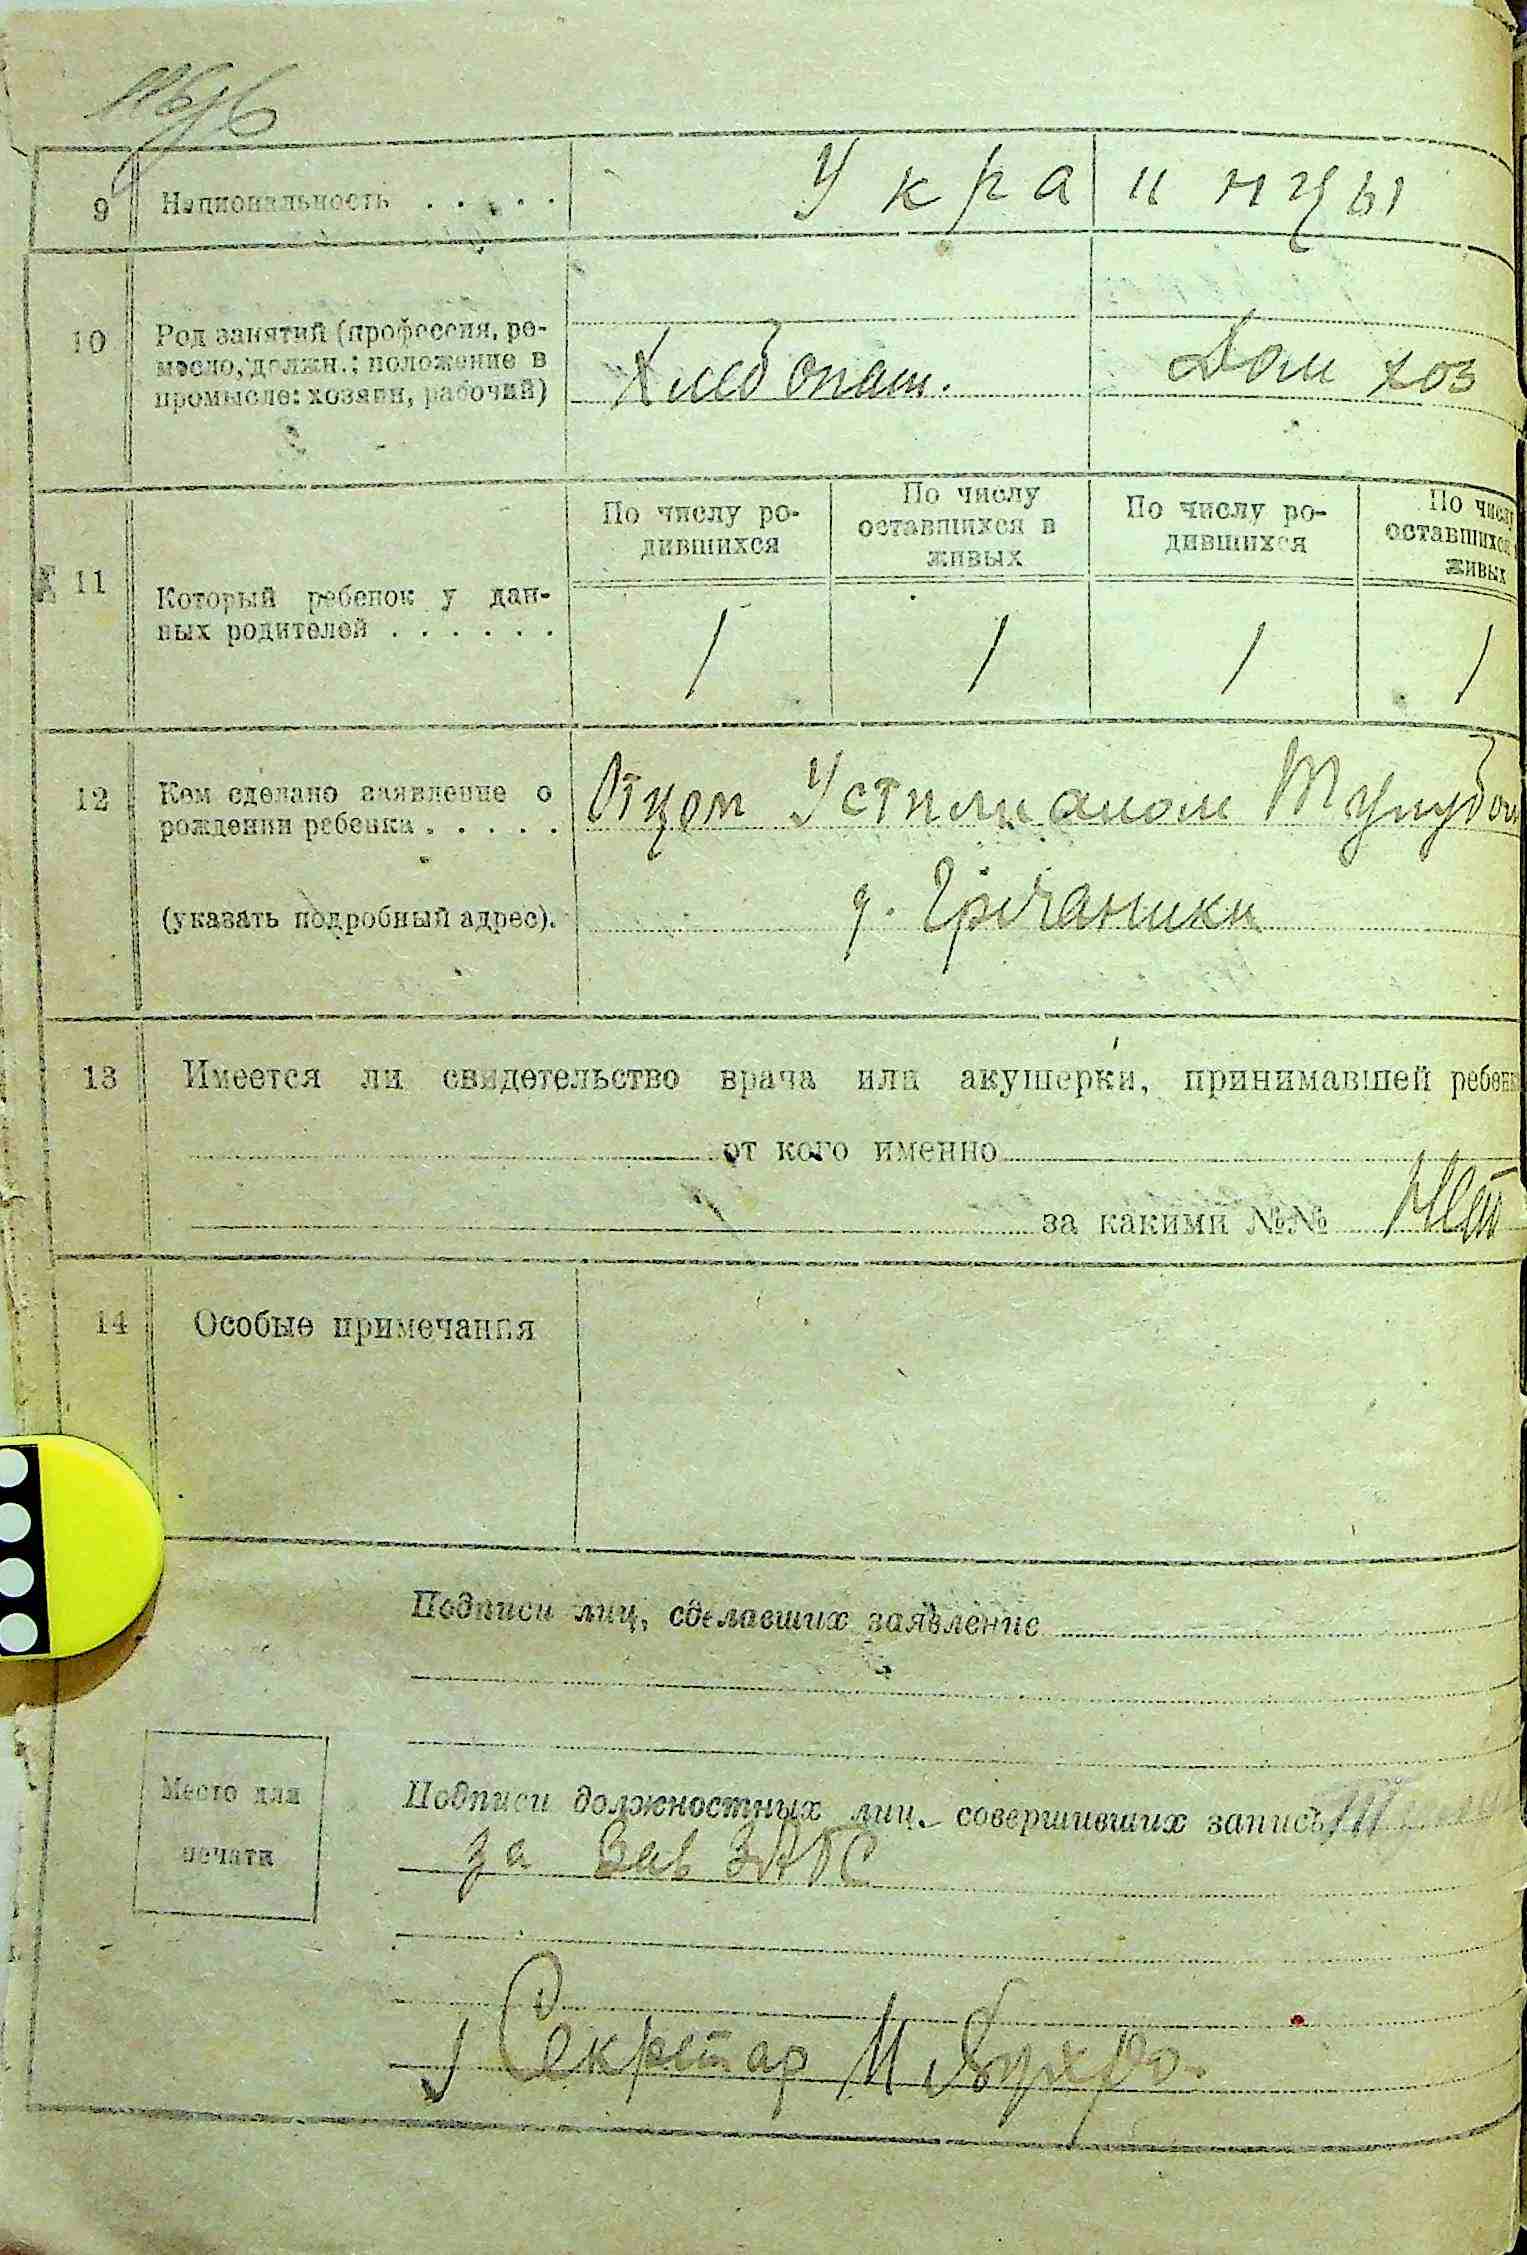 9 Национальность . . . . . Украинцы
10 Род занятий (профессия, ре-
месло, должн.; положение в
промысле: хозяин, рабочий)
Хлебопаш. Дом хоз
По числу ро-
дившихся
По числу
оставшихся в
живых
По числу ро-
дившихся
По числу
оставшихся
живых
11 Который ребенок у дан-
ных родителей . . . . . .
1 1 1 1
12 Кем сделано заявление о
рождении ребенка . . . . .
Отцом
(указать подробный адрес).
д. Гречаники
13 Имеется ли свидетельство врача или акушерки, принимавшей
от кого именно
за какими №№ Нет
14 Особые примечания
Подписи лиц, сделавших заявление
Место для
печати
Подписи должностных лиц, совершивших запись
за Зав ЗАГС
Секретар